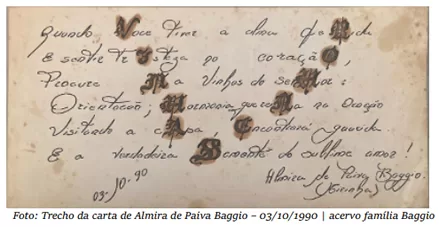 Quando Você tiver a alma
E sentir Tristeza no coração,
Procure Na Vinha do Senhor:
Orientação; Harmonia que na Oração
Visitando a Encontrará guarida
E a verdadeira Semente do sublime amor!
Almira de Paiva Baggio.
03-10-90
Foto: Trecho da carta de Almira de Paiva Baggio – 03/10/1990 | acervo família Baggio